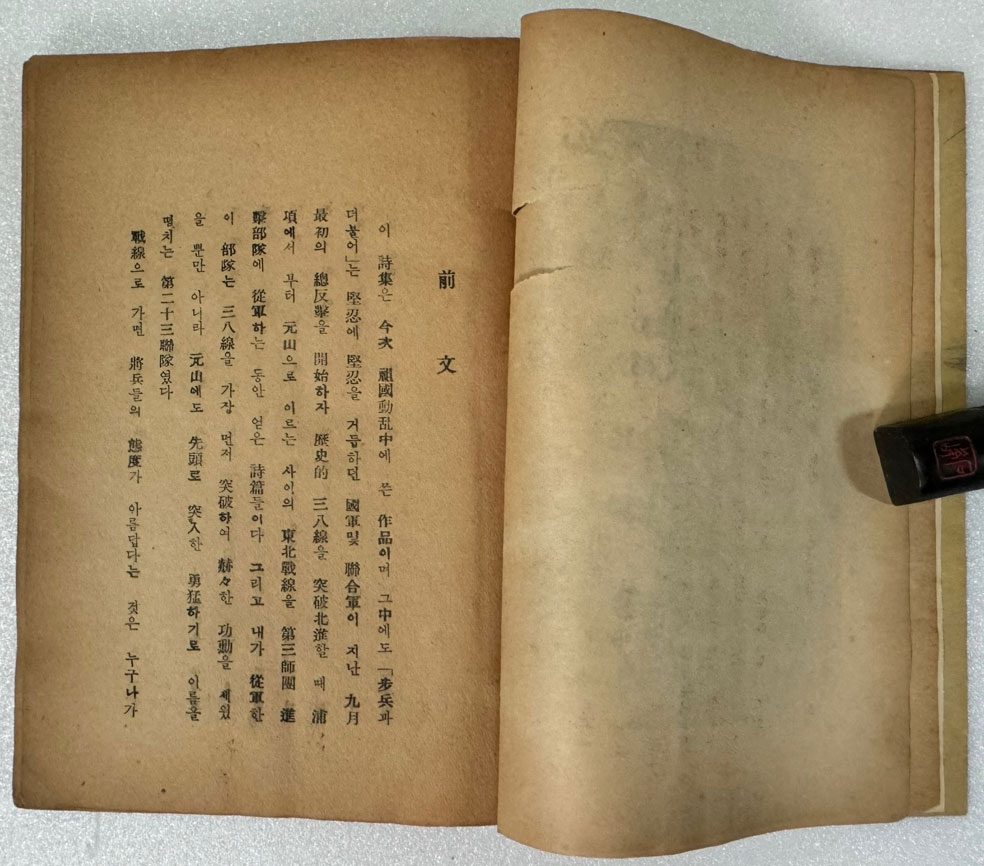 前文
이 詩集은 今次 祖國動乱中에 쓴 作品이며 그中에도 「步兵과
더불어」는 堅忍에 堅忍을 거듭하던 國軍및 聯合軍이 지난 九月
最初의 總反擊을 開始하자 歷史的 三八線을 突破北進할 때 浦
項에서 부터 元山으로 이르는 사이의 東北戰線을 第三師團 進
擊部隊에 從軍하는 동안 얻은 詩篇들이다 그리고 내가 從軍한
이 部隊는 三八線을 가장 먼저 突破하여 赫々한 功勳을 세웠
을 뿐만 아니라 元山에도 先頭로 突入한 勇猛하기로 이름을
떨치는 第二十三聯隊였다
戰線으로 가면 將兵들의 態度가 아름답다는 것은 누구나가